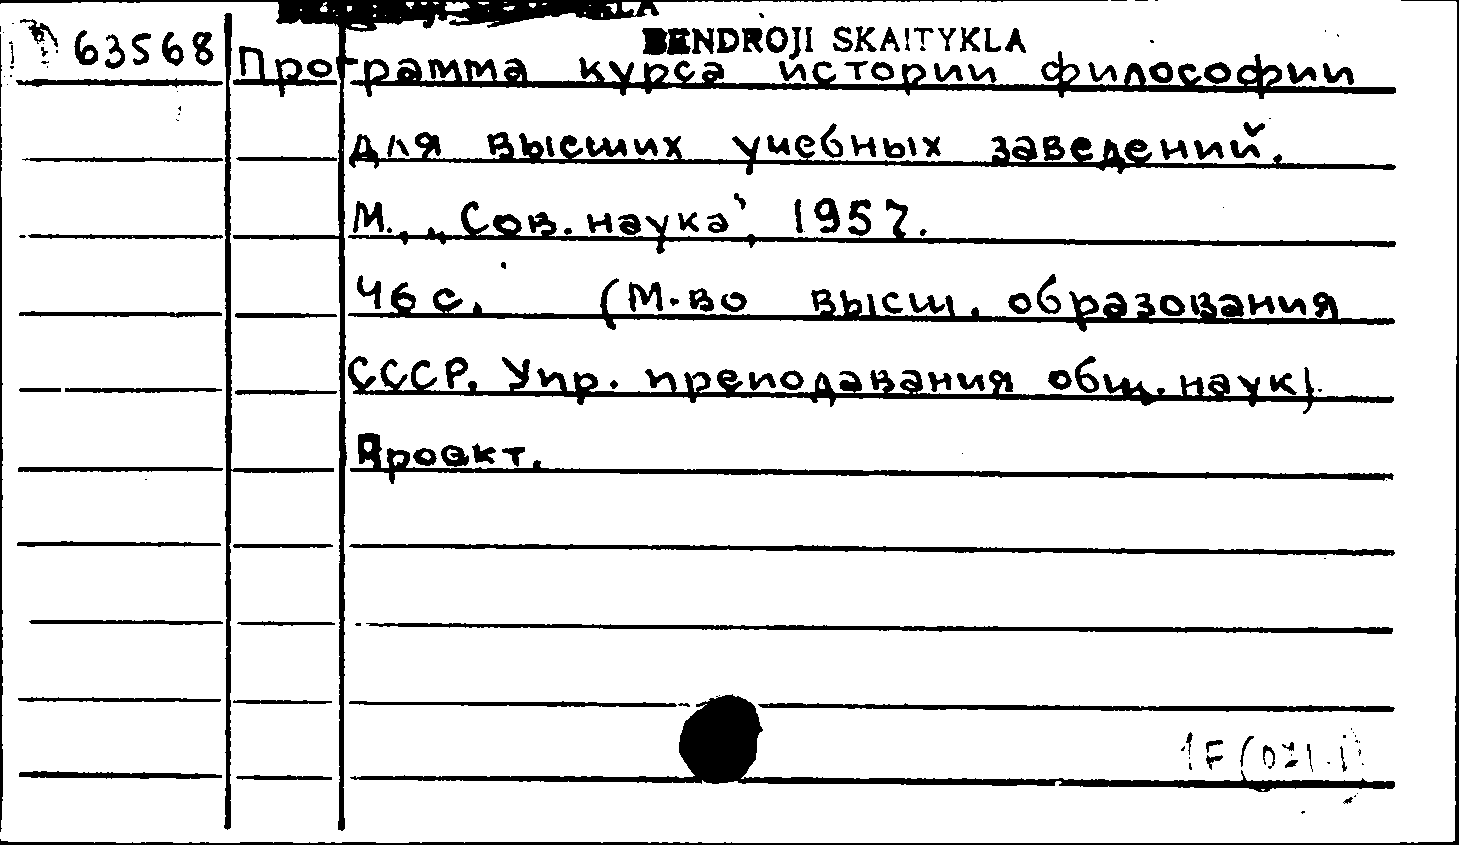 BENDROJI SKAITYKLA
63568 Программа курса истории философии
для высших учебных заведений.
М., „Сов. наука", 1957.
46 с. (М-во высш. образования
СССР. Упр. преподавания общ. наук).
Проект.
1F(071.1)